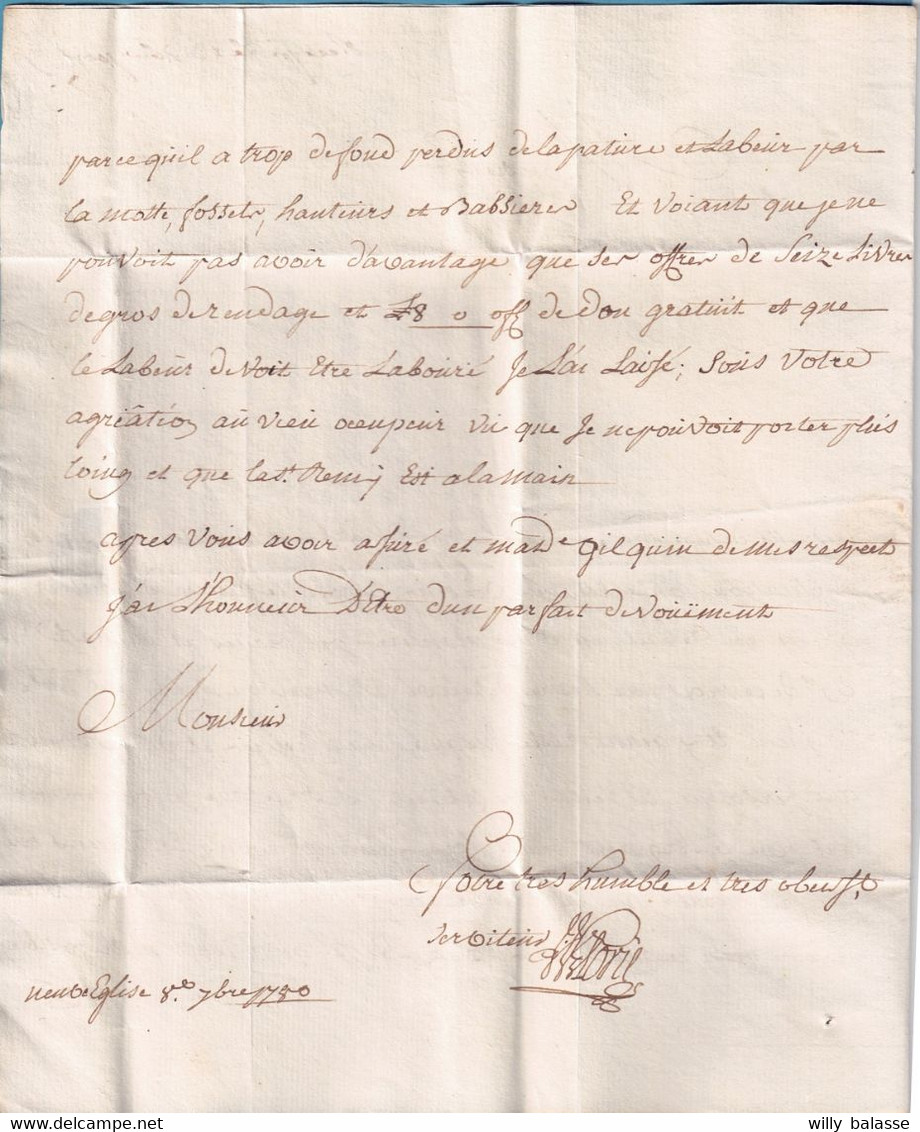 parcequil a trop defond perdus delapature et Labeur par
la motte, fossets, hauteurs et Bassieres Et Voiant que jene
pouvoit pas avoir d'avantage que ses offres de Seize Livres
degros derendage et £8 0 de don gratuit et que
le Labeur devoit Etre Labouré Je L'ai Laissé; Sous Votre
agréätion au vieu ocupeur vu que Je nepouvoit porter plus
loing et que la St. Remij Est alamain
apres Vous avoir assuré et mad.e Gilquin demes respect
j'ai L'honneur D'Etre d'un parfait devoüement
Monsieur
Votre tres humble et tres obeist.
serviteur
neuveEglise 8.e 7bre 1780
willy balasse